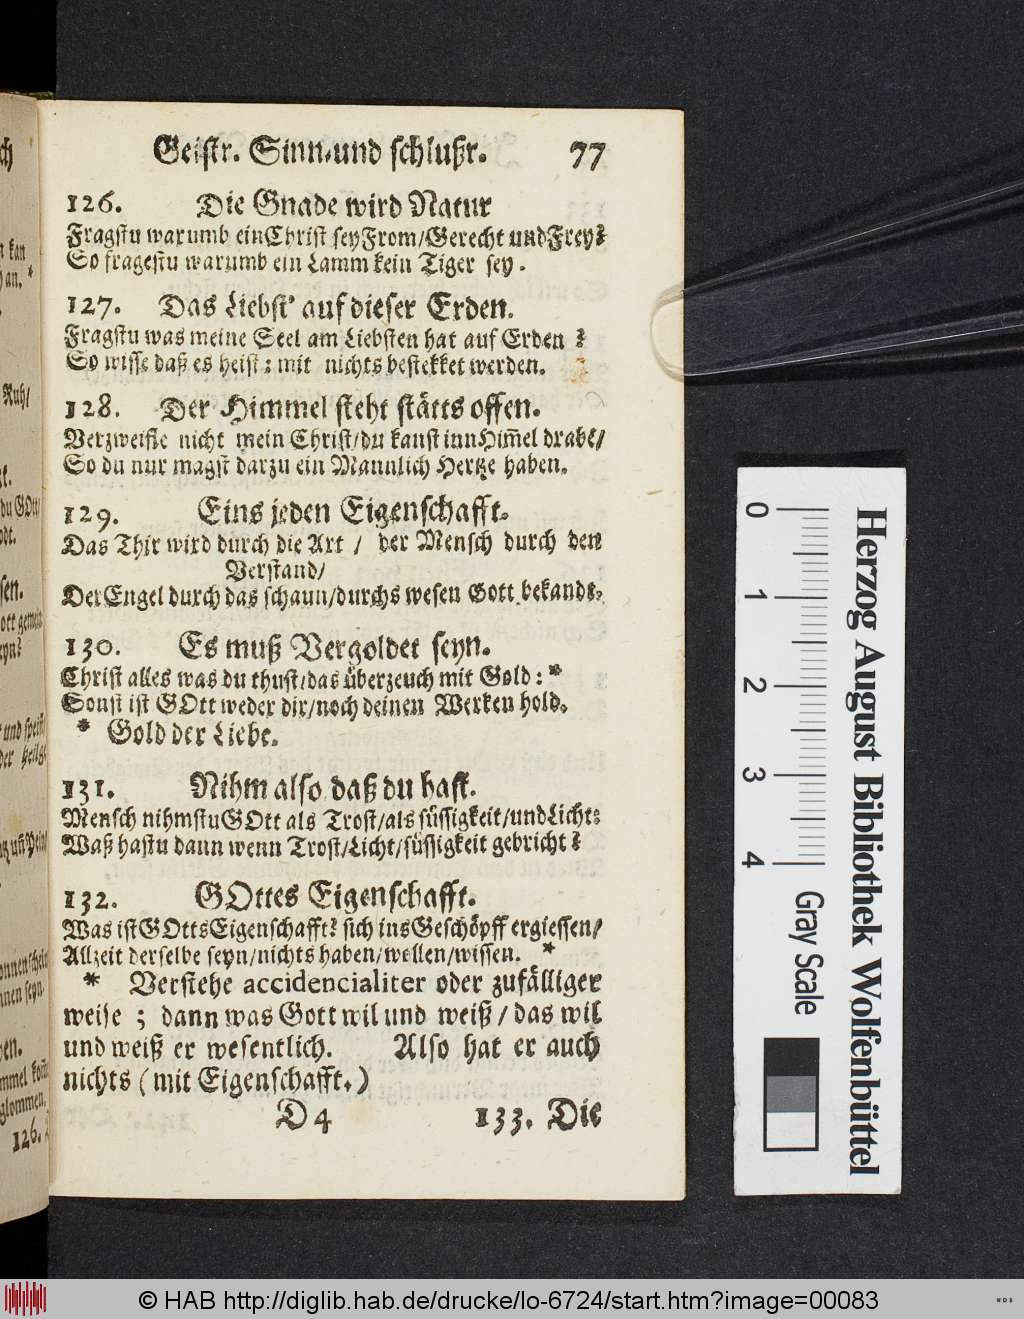 Geistr. Sinn-und schlußr. 77
126. Die Gnade wird Natur
Fragstu warumb ein Christ sey From/Gerecht und Frey?
So fragestu warumb ein Lamm kein Tiger sey.
127. Das Liebst' auf dieser Erden.
Fragstu was meine Seel am Liebsten hat auf Erden ?
So wisse daß es heist: mit nichts beflekket werden.
128. Der Himmel steht stätts offen.
Verzweifle nicht mein Christ/du kanst inn Him̃el drabē/
So du nur magst darzu ein Mannlich Hertze haben.
129. Eins jeden Eigenschafft.
Das Thir wird durch die Art / der Mensch durch den
Verstand/
Der Engel durch das schaun/durchs wesen Gott bekandt.
130. Es muß Vergoldet seyn.
Christ alles was du thust/das überzeuch mit Gold: *
Sonst ist GOtt weder dir/noch deinen Werken hold.
* Gold der Liebe.
131. Nihm also daß du hast.
Mensch nihmstu GOtt als Trost/als süssigkeit/und Licht:
Waß hastu dann wenn Trost/Licht/süssigkeit gebricht?
132. GOttes Eigenschafft.
Was ist GOtts Eigenschafft? sich ins Geschöpff ergiessen/
Allzeit derselbe seyn/nichts haben/wollen/wissen. *
* Verstehe accidencialiter oder zufälliger
weise ; dann was Gott wil und weiß / das wil
und weiß er wesentlich. Also hat er auch
nichts (mit Eigenschafft.)
D 4 133. Die
0 1 2 3 4
Gray Scale
Herzog August Bibliothek Wolfenbüttel
© HAB http://diglib.hab.de/drucke/lo-6724/start.htm?image=00083